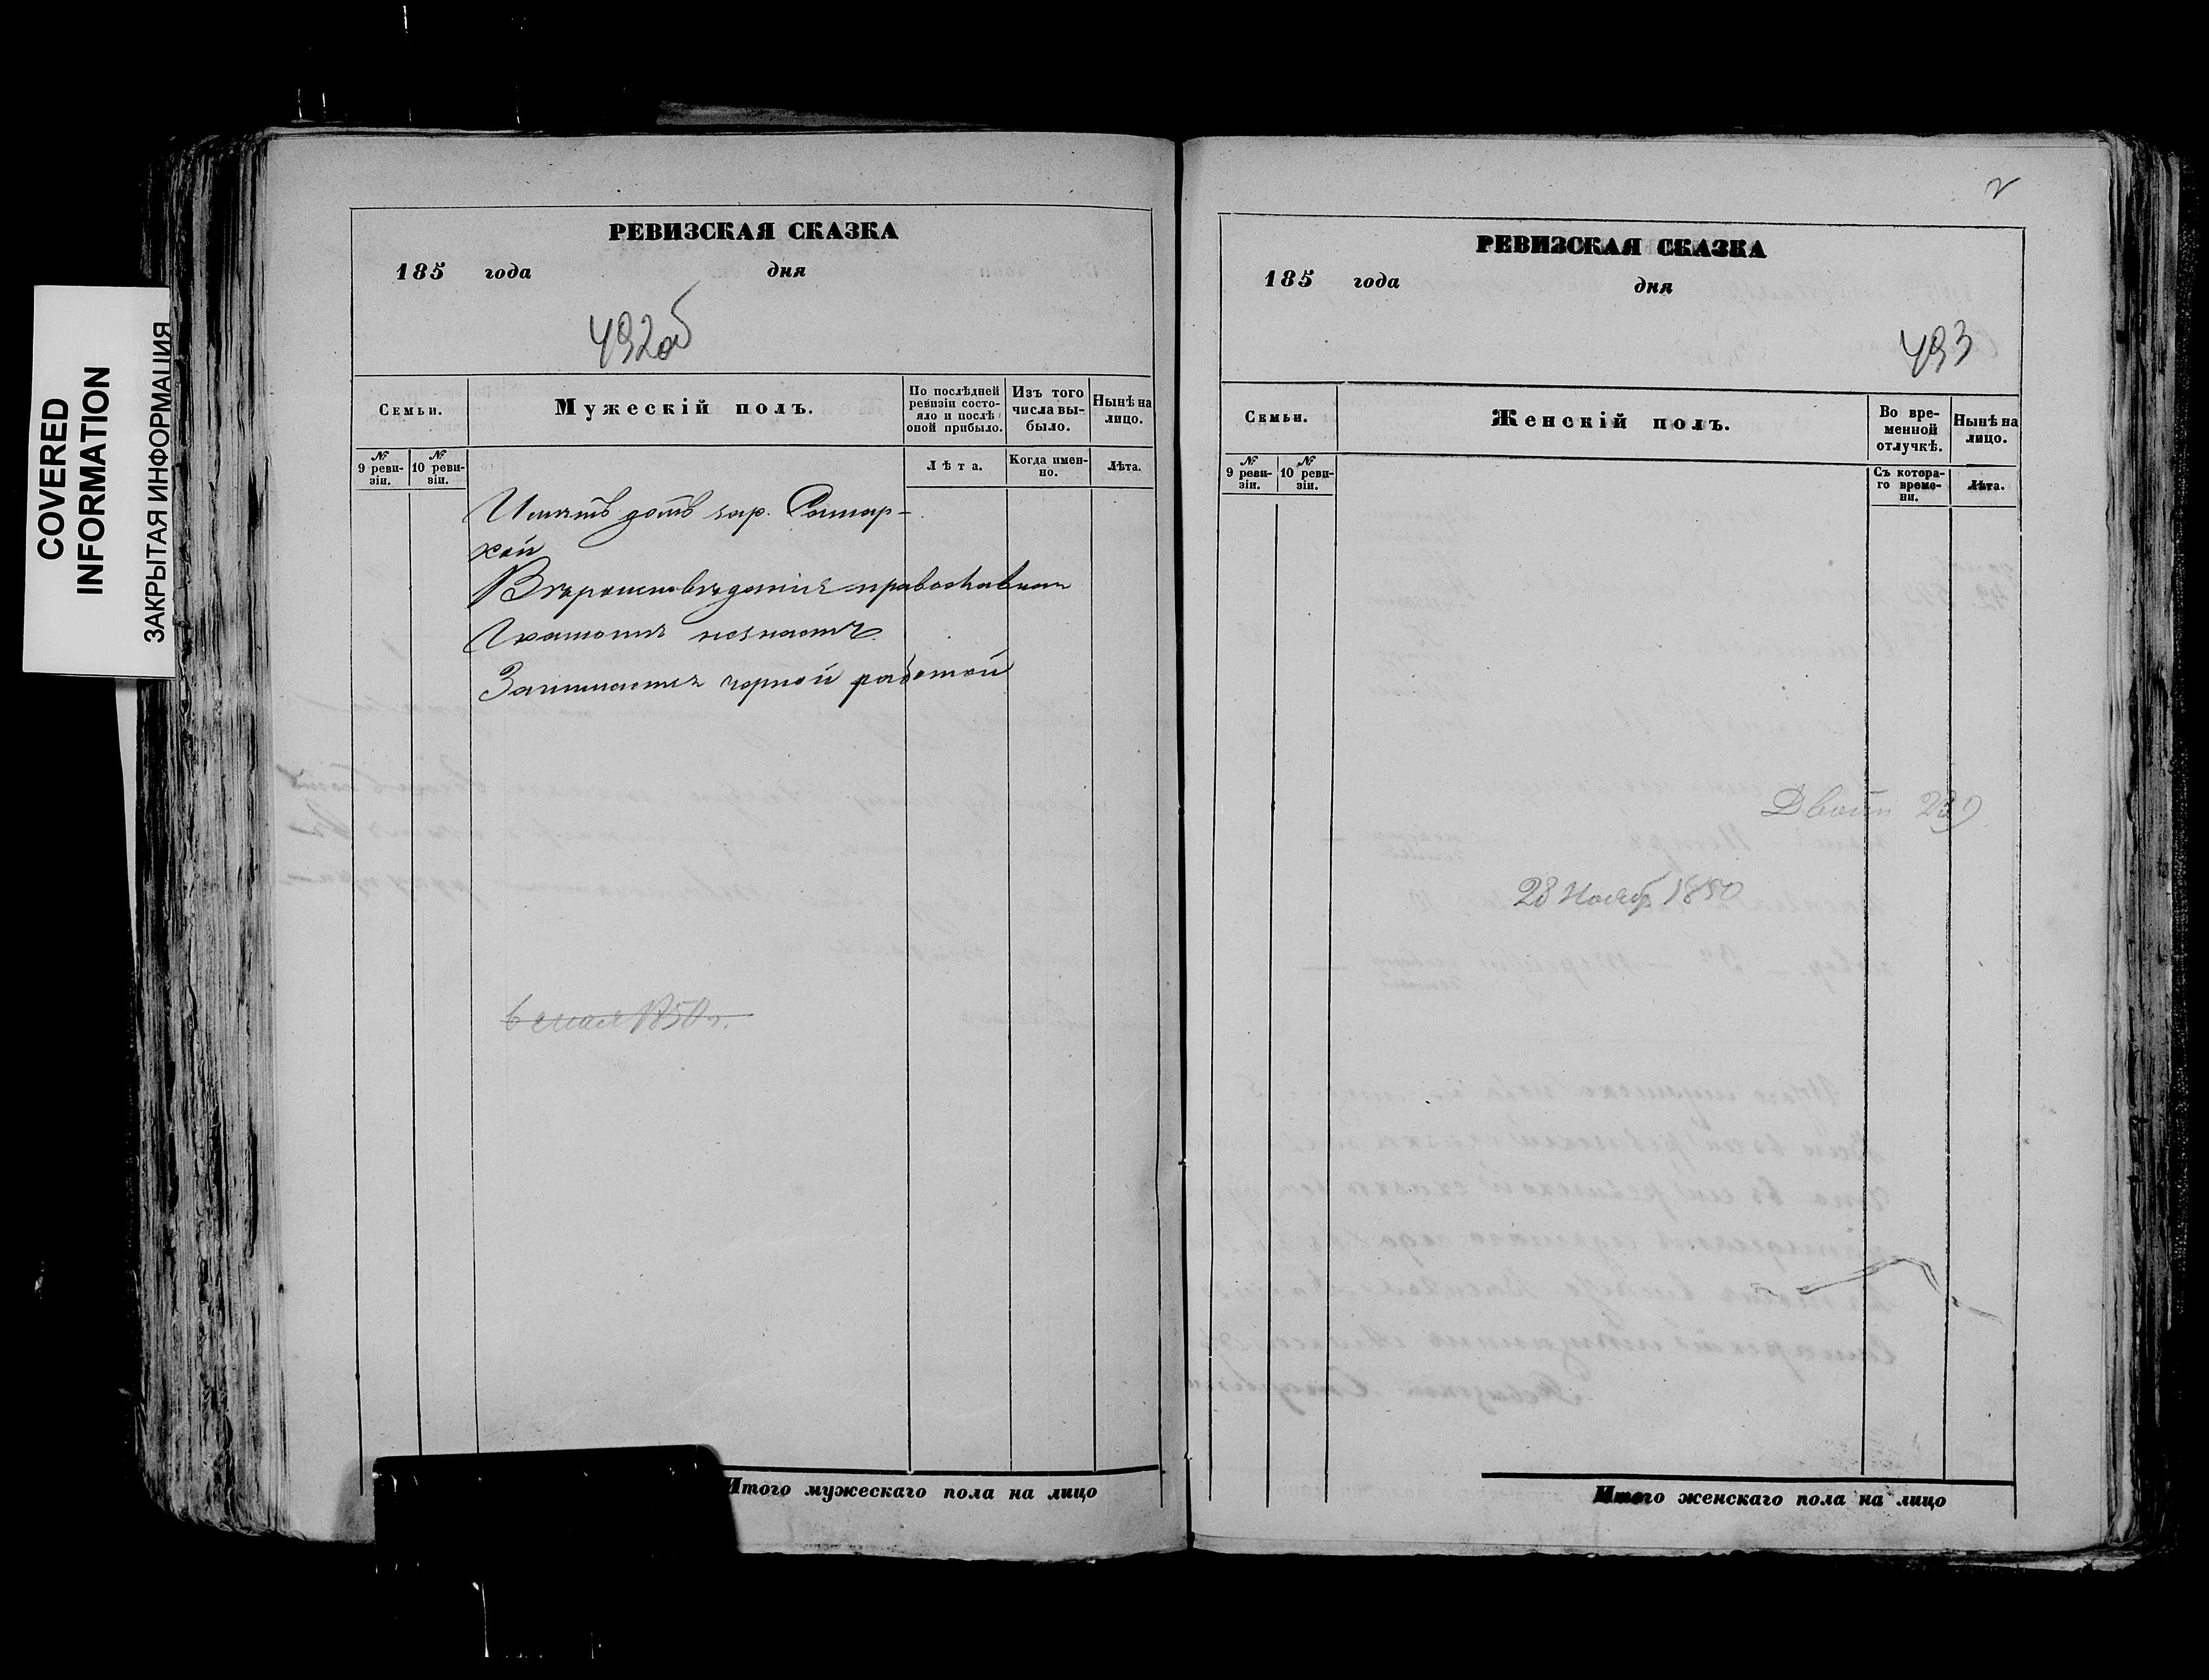 COVERED
INFORMATION
ЗАКРЫТАЯ ИНФОРМАЦИЯ
РЕВИЗСКАЯ СКАЗКА
185 года дня
492об
Семьи.
Мужескій полъ.
По послѣдней ревизіи состояло и послѣ оной прибыло.
Изъ того числа выбыло.
Нынѣ на лицо.
№ 9 ревизіи.
№ 10 ревизіи.
Лѣта.
Когда именно.
Лѣта.
домъ
кой
Вѣроисповѣданія православнаго
Грамотѣ незнаетъ
Занимается чорной работой
6 мая 1850 г.
Итого мужескаго пола на лицо
2
РЕВИЗСКАЯ СКАЗКА
185 года дня
493
Семьи.
Женскій полъ.
Во временной отлучкѣ.
Нынѣ на лицо.
№ 9 ревизіи.
№ 10 ревизіи.
Съ котораго времени.
Лѣта.
28 Ноябр 1850
Итого женскаго пола на лицо